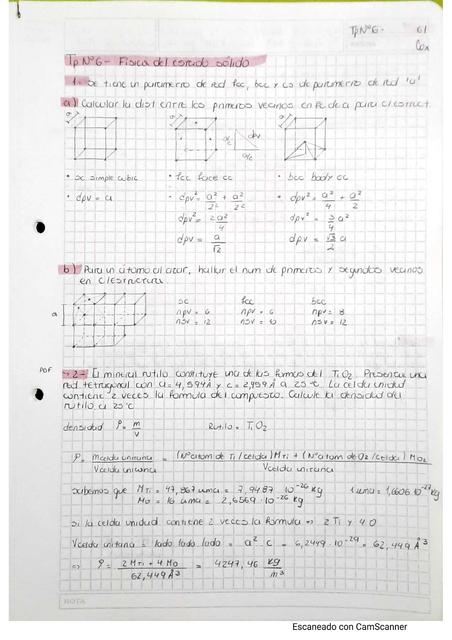 TpNº6- 61
TpNº6- Física del estado sólido
1- Se tiene un parametro de red fcc, bcc y cs de parametro de red "a"
a) Calcular la dist entre los primeros vecinos en Fe de a para c/estruct.
• sc simple cubic • fcc face cc • bcc body cc
• dpv = a • dpv² = a²/2² + a²/2² • dpv² = a²/4 + a²/2
dpv² = 2a²/4 dpv² = 3/4 a²
dpv = a/√2 dpv = √3/2 a
b) Para un átomo al azar, hallar el num de primeros y segundos vecinos
en c/estructura
sc fcc bcc
npv = 6 npv = 6 npv = 8
nsv = 12 nsv = 10 nsv = 12
PDF
-2- El mineral rutilo constituye una de las formas del TiO2. Presenta una
red tetragonal con a = 4,594Å y c = 2,959Å a 25ºC. La celda unidad
contiene 2 veces la formula del compuesto. Calcule la densidad del
rutilo a 25ºC
densidad ρ = m/v Rutilo = TiO2
ρ = mcelda unitaria / Vcelda unitaria = (Nºatom de Ti/celda) MTi + (Nºatom de O2/celda) MO2 / Vcelda unitaria
sabemos que MTi = 47,867 uma = 7,9487 · 10⁻²⁶ kg 1uma = 1,6606 · 10⁻²⁷ kg
MO = 16 uma = 2,6569 · 10⁻²⁶ kg
si la celda unidad contiene 2 veces la formula => 2 Ti y 4 O
Vcelda unitaria = lado lado lado = a² c = 6,2449 · 10⁻²⁹ = 62,449 Å³
=> ρ = 2 MTi + 4 MO / 62,449 Å³ = 4247,46 kg/m³
NOTA
Escaneado con CamScanner